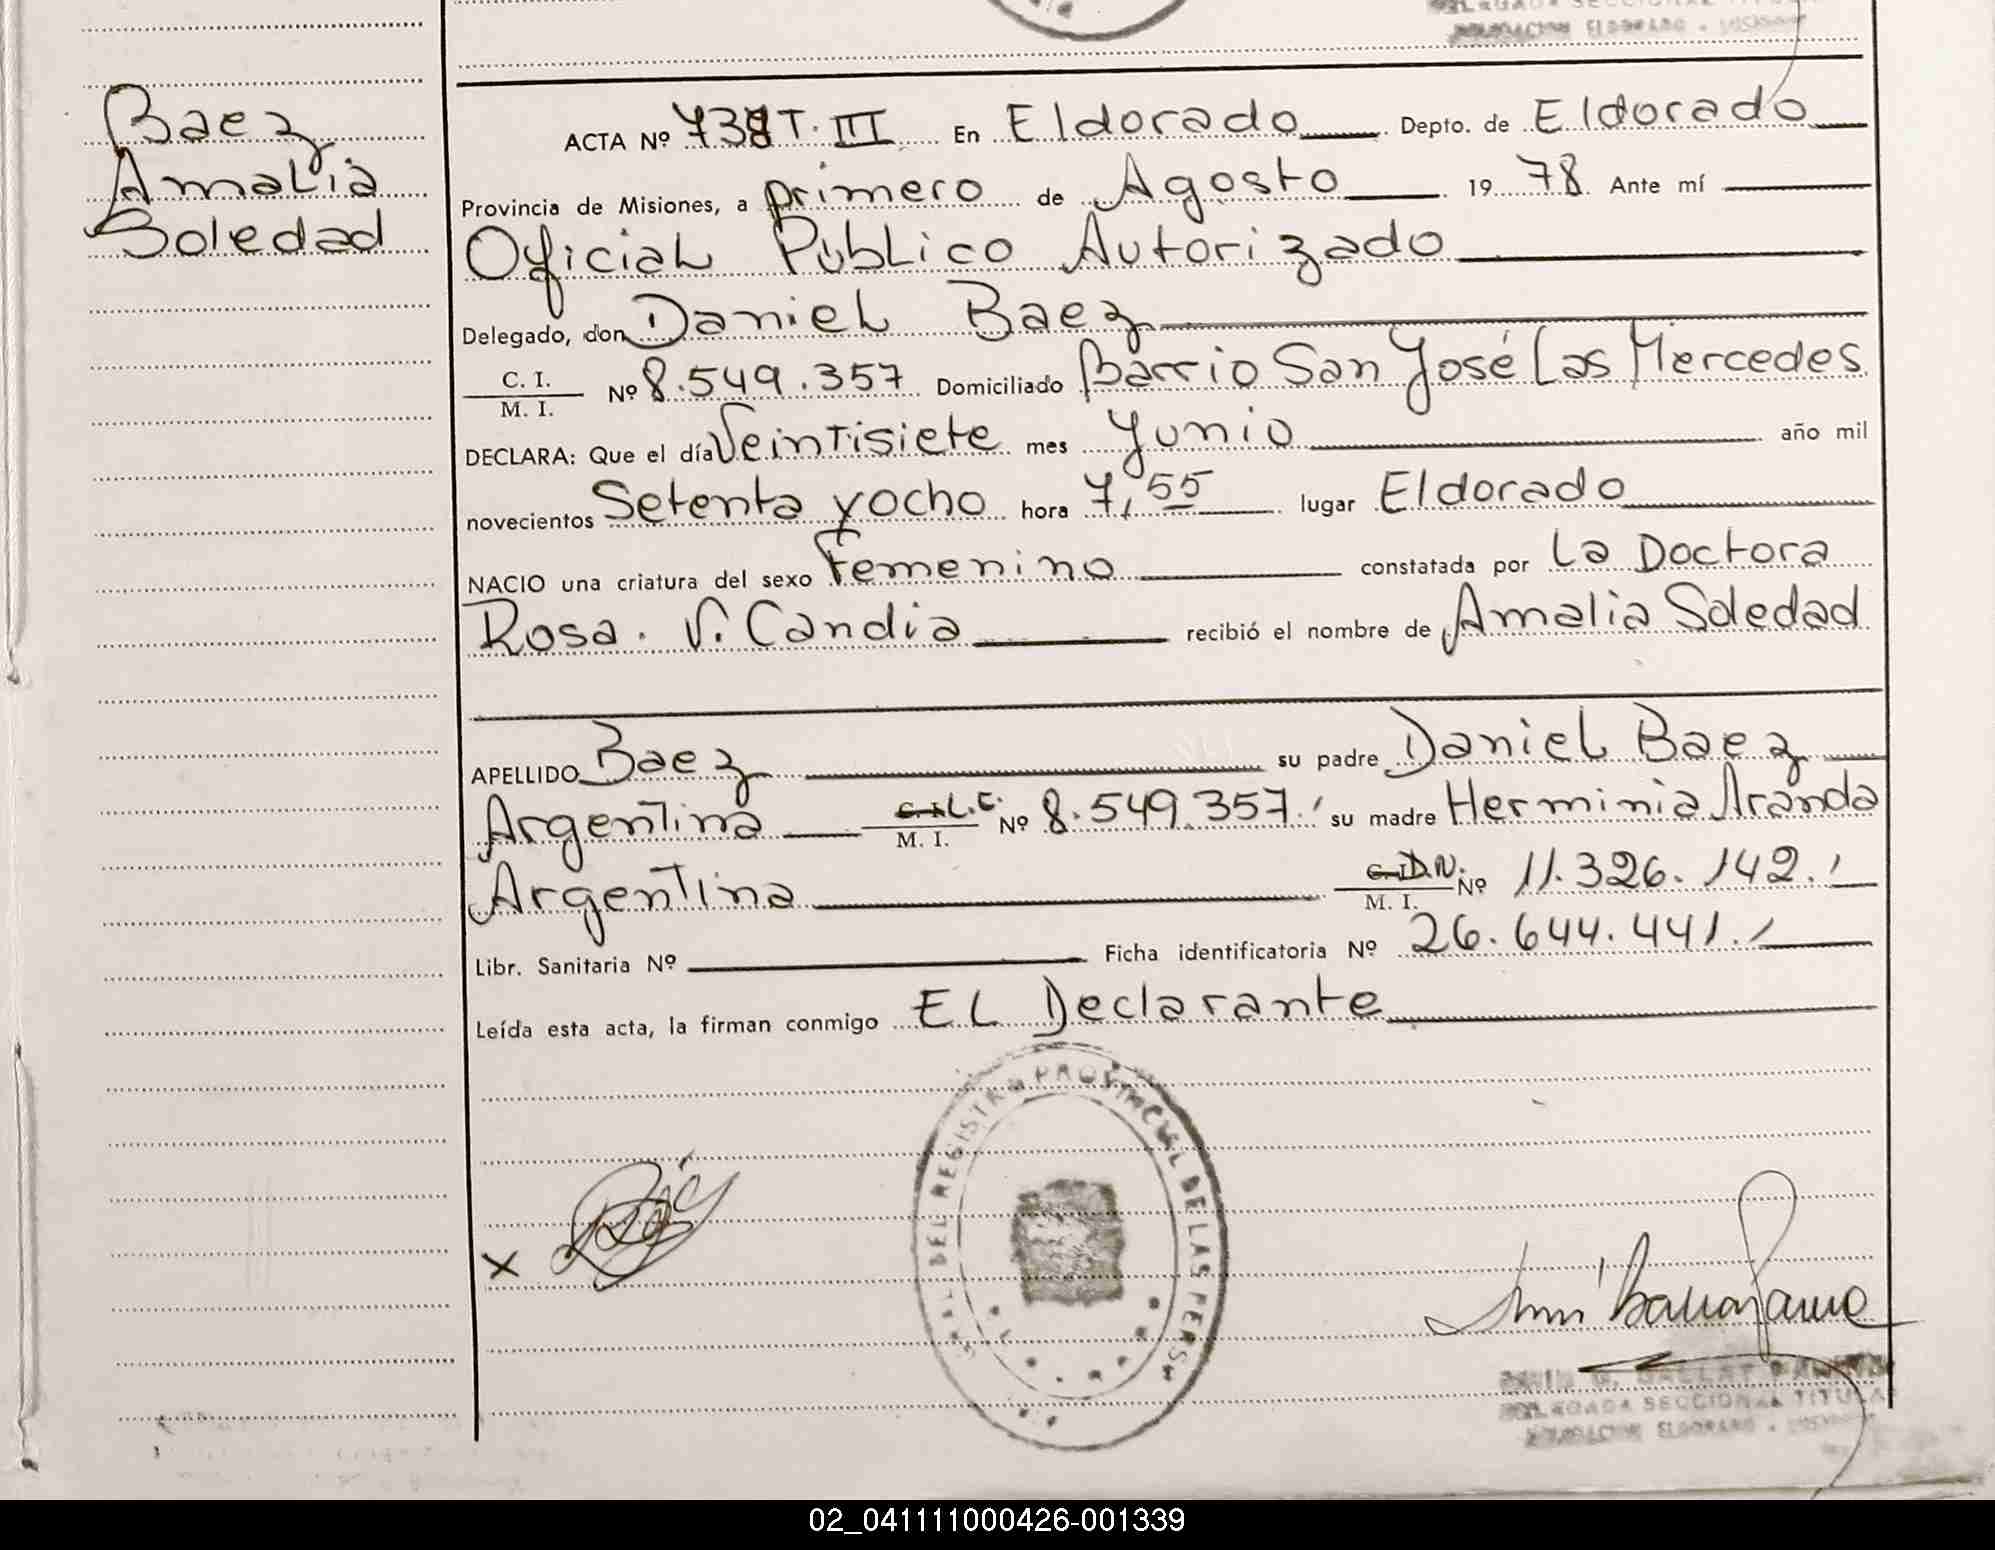 Baez
Amalia
Soledad
ACTA Nº 738 T. III En Eldorado Depto. de Eldorado
Provincia de Misiones, a primero de Agosto 19 78 Ante mí
Oficial Publico Autorizado
Delegado, don Daniel Baez
C. I.
M. I. Nº 8.549.357 Domiciliado Barrio San José Las Mercedes
DECLARA: Que el día Veintisiete mes Junio año mil
novecientos Setenta y ocho hora 7,55 lugar Eldorado
NACIO una criatura del sexo Femenino constatada por La Doctora
Rosa. V. Candia recibió el nombre de Amalia Soledad
APELLIDO Baez su padre Daniel Baez
Argentina L.E. M. I. Nº 8.549.357. su madre Herminia Aranda
Argentina D.N. M. I. Nº 11.326.142.
Libr. Sanitaria Nº Ficha identificatoria Nº 26.644.441.
Leída esta acta, la firman conmigo EL Declarante
DEL REGISTRO PROVINCIAL DE LAS PERS
X
DELEGADA SECCIONAL TITULAR
ELDORADO
02_041111000426-001339